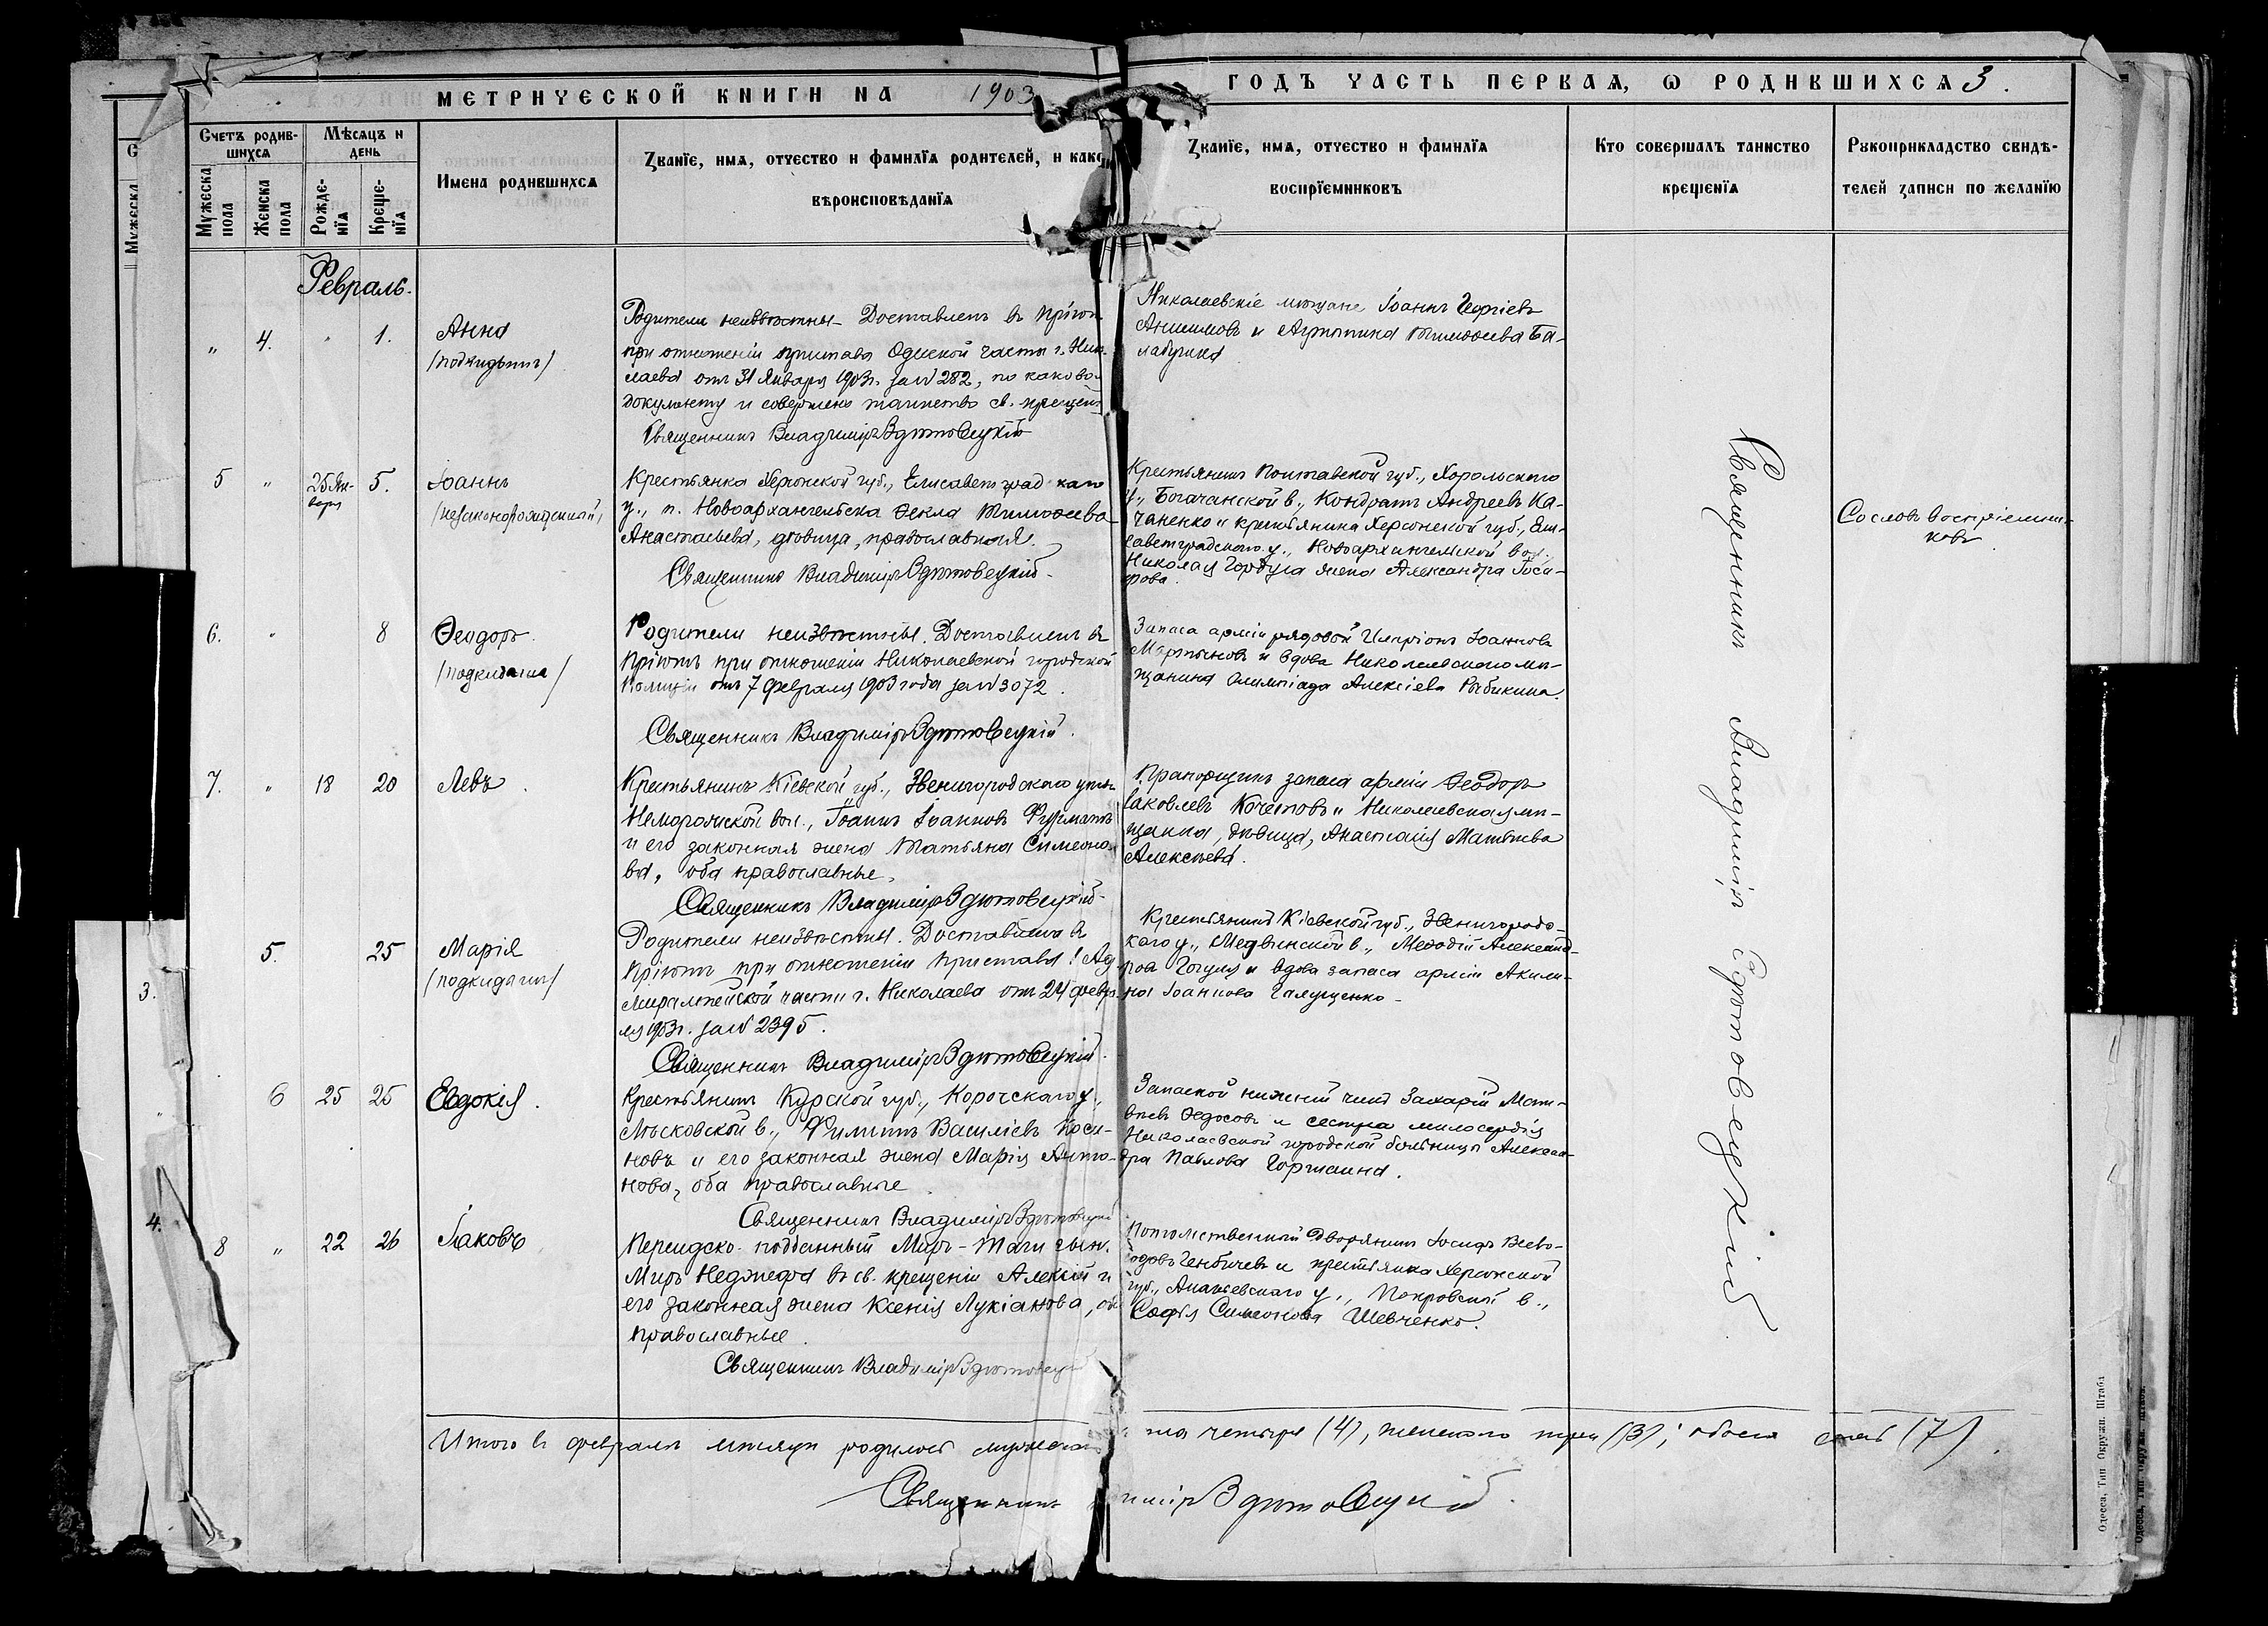 МЕТРИЧЕСКОЙ КНИГИ НА 1903
ГОДЪ ЧАСТЬ ПЕРВАЯ, Ѡ РОДИВШИХСЯ 3.
Счетъ родив-
шихся
Мужеска
пола
Женска
пола
Мѣсяцъ и
день
Рожде-
нїя
Креще-
нїя
Имена родившихся
Званїе, имя, отчество и фамилїя родителей, и како
вѣроисповѣданїя
Званїе, имя, отчество и фамилїя
воспрїемниковъ
Кто совершалъ таинство
крещенїя
Рукоприкладство свидѣ-
телей записи по желанїю
Февраль.
" 4. " 1.
Анна
/подкидышъ/
Родители неизвѣстны. Доставленъ въ Пріютъ
при отношеніи пристава Одесской части г. Нико-
лаева отъ 31 Января 1903 г. за № 282, по каково-
документу и совершено таинство св. крещен
Священникъ Владиміръ Здетовецкій
Николаевскіе мѣщане Іоаннъ Георгіевъ
Анисимовъ и Агриппина Тимоѳеева Ба-
лабушка
5 " 25 Ян-
варя 5.
Іоаннъ
/незаконорожденный/
Крестьянка Херсонской губ., Елисаветград каго
у., п. Новоархангельска Ѳекла Тимоѳеева
Анастасьева, дѣвица, православная.
Священникъ Владиміръ Здетовецкій
Крестьянинъ Полтавской губ., Хорольскаго
у., Богачанской в., Кондратъ Андреевъ Ка-
чаненко и крестьянина Херсонской губ., Ели-
саветградскаго у., Новоархангельской вол.
Николая Гордуга жена Александра
Со словъ воспріемни-
ковъ
6. " 8
Ѳеодоръ.
/подкидышъ/
Родители неизвѣстны. Доставленъ въ
Пріютъ при отношеніи Николаевской городской
Полиціи отъ 7 февраля 1903 года за № 3072.
Священникъ Владиміръ Здетовецкій.
Запаса арміи рядовой Иларіонъ Іоанновъ
Мартыновъ и вдова Николаевскаго мѣ-
щанина Олимпіада Алексіева Рыбикина.
7. " 18 20
Левъ.
Крестьянинъ Кіевской губ., Звенигородскаго уѣзд
Неморожской вол., Іоаннъ Іоанновъ Фурманъ
и его законная жена Татьяна Симеоно-
ва, оба православные.
Священникъ Владиміръ Здетовецкій
Прапорщикъ запаса арміи Ѳеодоръ
Іаковлевъ Кочетовъ и Николаевская мѣ-
щанка, дѣвица, Анастасія Матвѣева
Алексѣева.
5. 25
Марія
/подкидышъ/
Родители неизвѣстны. Доставлена въ
Пріютъ при отношеніи Пристава 1 Ад-
миралтейской части г. Николаева отъ 24 февра-
ля 1903 г. за № 2395.
Священникъ Владиміръ Здетовецкій.
Крестьянинъ Кіевской губ., Звенигородс-
каго у., Медвинской в., Меѳодій Александ-
ровъ Гогуля и вдова запаса арміи Акили-
на Іоаннова Галущенко.
6 25 25
Евдокія.
Крестьянинъ Курской губ., Корочскаго у.,
в., Филиппъ Василіевъ Коси-
новъ и его законная жена Марія Анто-
нова, оба православные
Священникъ Владиміръ Здетовецкій
Запасной нижній чинъ Захарій Мат-
вѣевъ Ѳедосовъ и сестра милосердія
Николаевской городской больницы Алексан-
дра Павлова
8 " 22 26
Іаковъ
Персидско-подданный Миръ-Таги сын.
Миръ Неджефа въ св. крещеніи Алексій и
его законная жена Ксенія Лукіанова, оба
православные.
Священникъ Владиміръ Здетовецкій
Потомственный дворянинъ Іосифъ Всево-
лодовъ и крестьянка Херсонской
губ., Ананьевскаго у., Покровской в.,
Софія Симеонова Шевченко.
Священникъ Владиміръ Здетовецкій
Итого въ февралѣ мѣсяцѣ родилось мужска
пола четыре (4), женскаго три (3); обоего семь (7).
Священникъ Владиміръ Здетовецкій.
3.
4.
Одесса, Тип. Окружн. Штаба